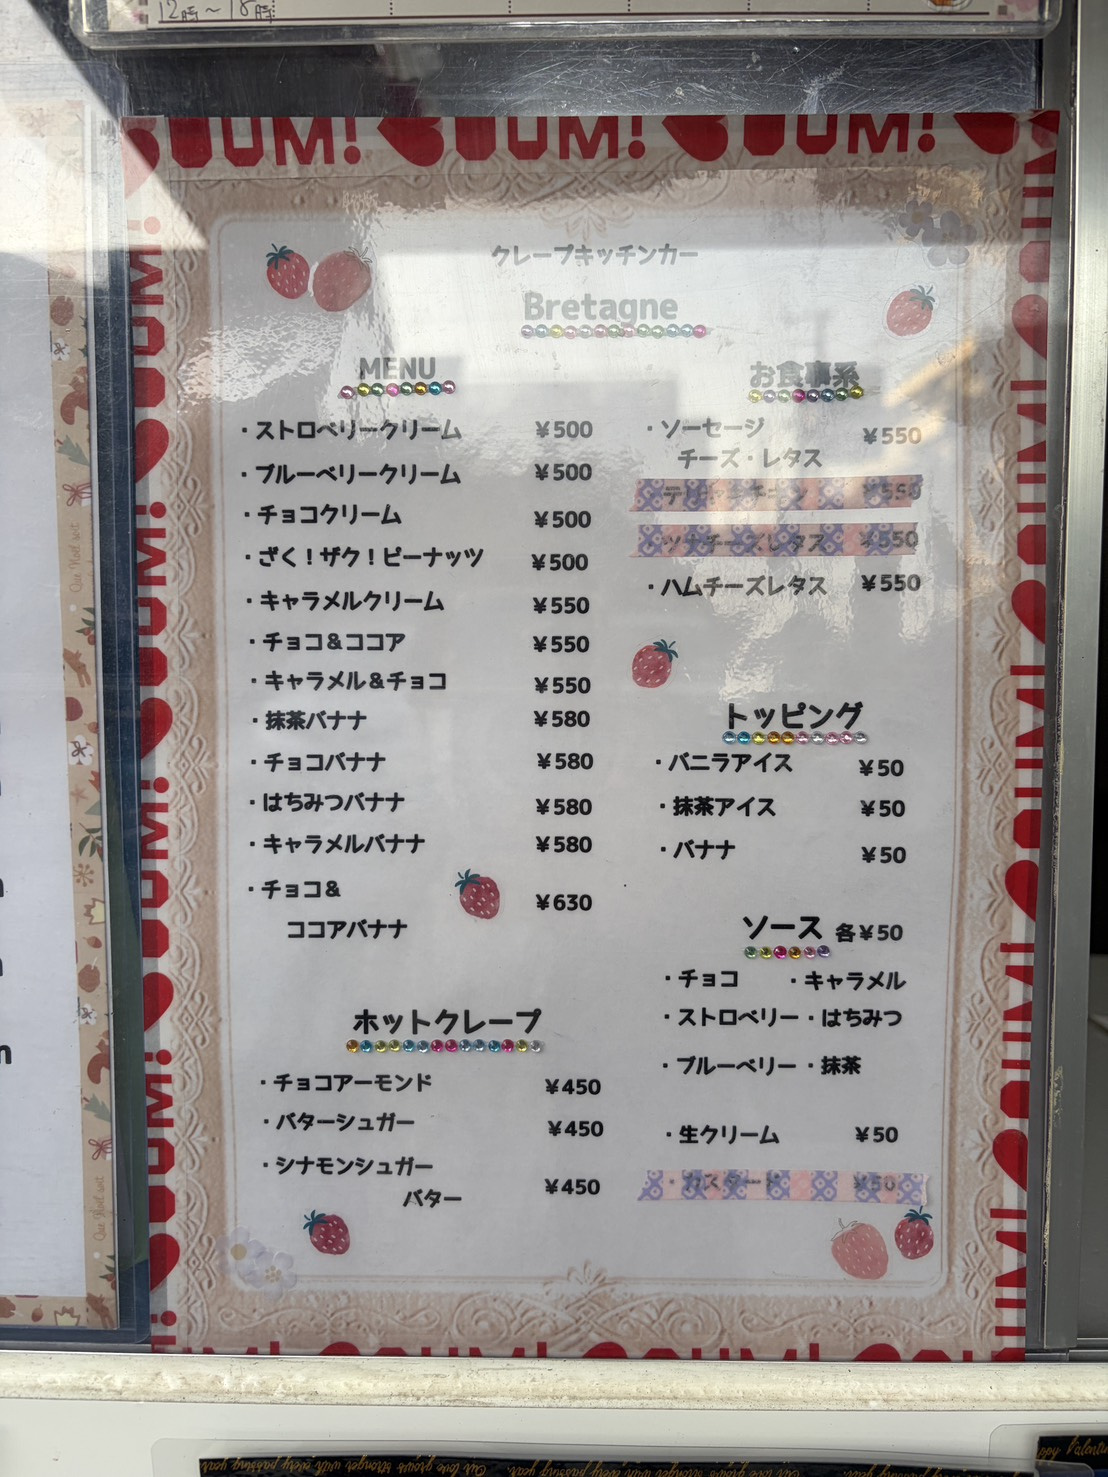 12時～18時
クレープキッチンカー
Bretagne
MENU
・ストロベリークリーム ¥500
・ブルーベリークリーム ¥500
・チョコクリーム ¥500
・ざく！ザク！ピーナッツ ¥500
・キャラメルクリーム ¥550
・チョコ＆ココア ¥550
・キャラメル＆チョコ ¥550
・抹茶バナナ ¥580
・チョコバナナ ¥580
・はちみつバナナ ¥580
・キャラメルバナナ ¥580
・チョコ＆
ココアバナナ ¥630
ホットクレープ
・チョコアーモンド ¥450
・バターシュガー ¥450
・シナモンシュガー
バター ¥450
お食事系
・ソーセージ ¥550
チーズ・レタス
・テリヤキチキン ¥550
・ツナチーズレタス ¥550
・ハムチーズレタス ¥550
トッピング
・バニラアイス ¥50
・抹茶アイス ¥50
・バナナ ¥50
ソース 各¥50
・チョコ ・キャラメル
・ストロベリー・はちみつ
・ブルーベリー・抹茶
・生クリーム ¥50
・カスタード ¥50